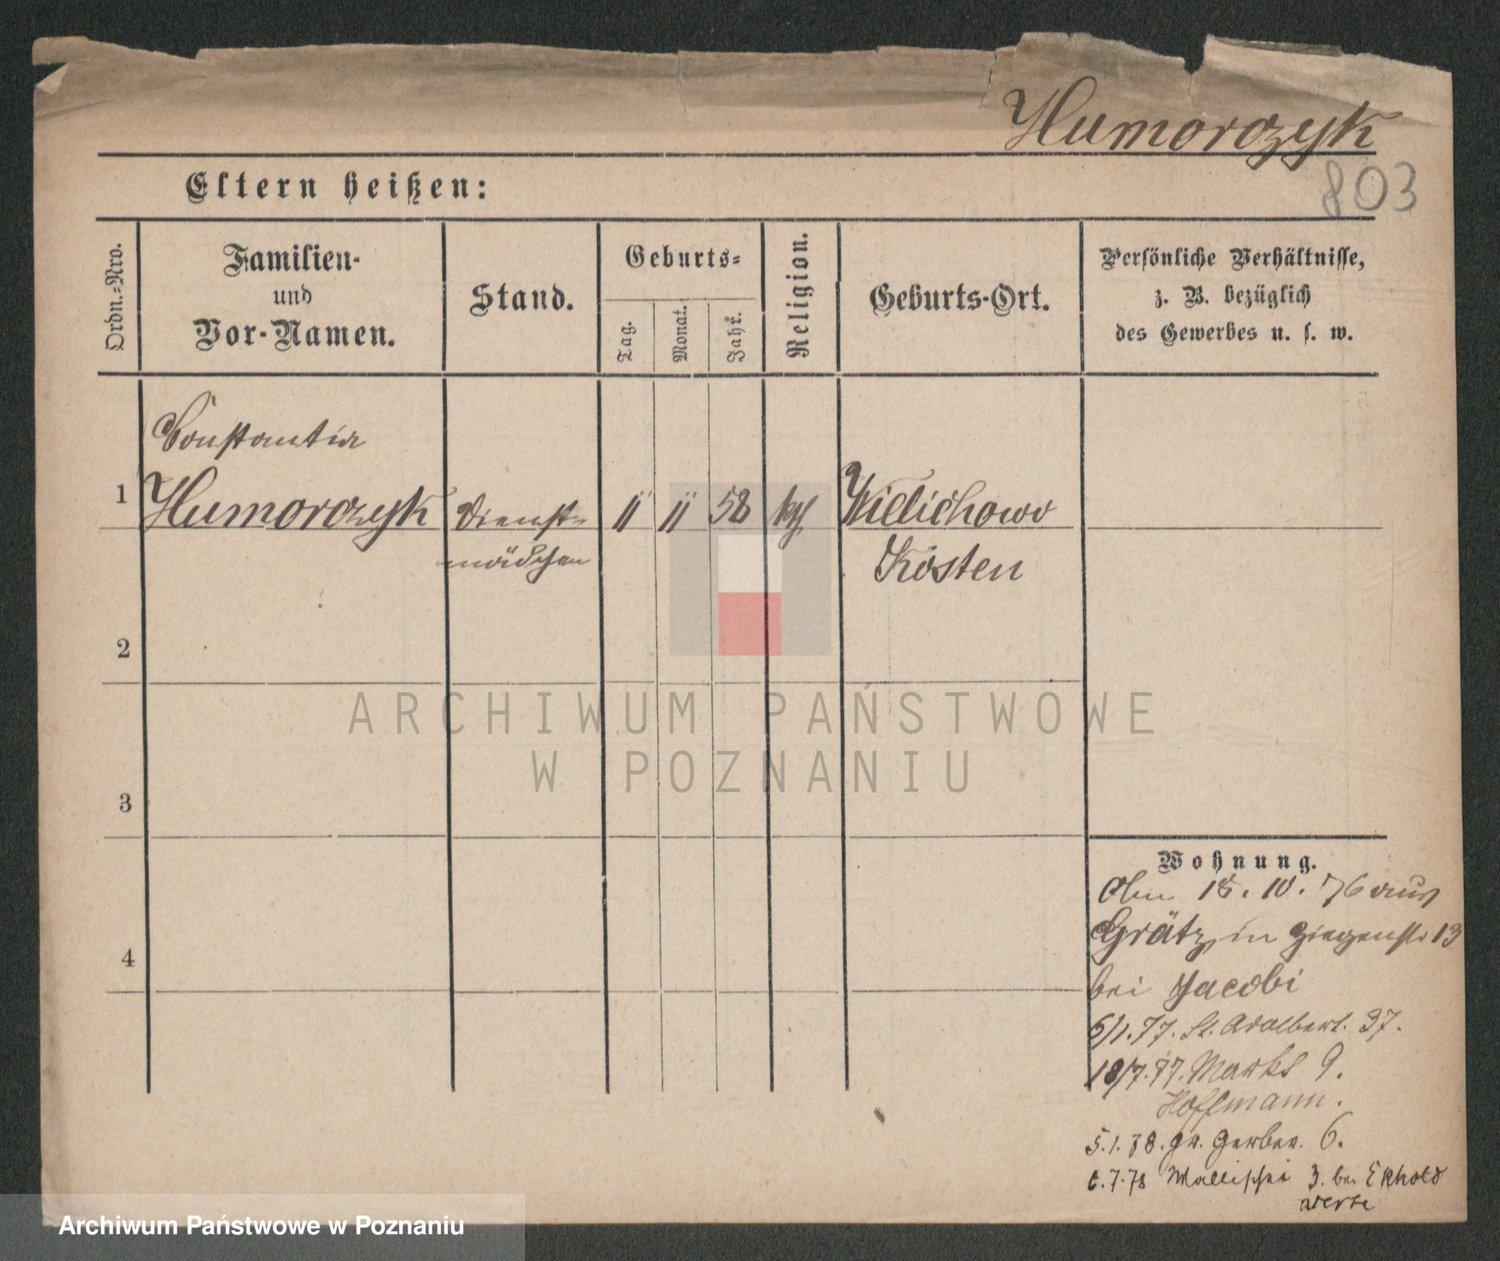 Humorczyk
803
Eltern heißen:
Ordn.-Nro.
Familien-
und
Vor-Namen.
Stand.
Geburts-
Tag.
Monat.
Jahr.
Religion.
Geburts-Ort.
Persönliche Verhältnisse,
z. B. bezüglich
des Gewerbes u. s. w.
Constantia
1 Humorczyk Dienst- 11 11 58 kth Wielichowo
mädchen Kosten
2
3
4
Wohnung.
18. 10. 76 aus
Grätz in Ziegenstr 13
bei Jacobi
5/1.77. St. Adalbert. 37.
18/7.77. Markt 9.
Hoffmann.
5.1.78. gr. Gerber. 6.
6.7.78 Wallischei 3. bei Ekhold
ARCHIWUM PAŃSTWOWE
W POZNANIU
Archiwum Państwowe w Poznaniu